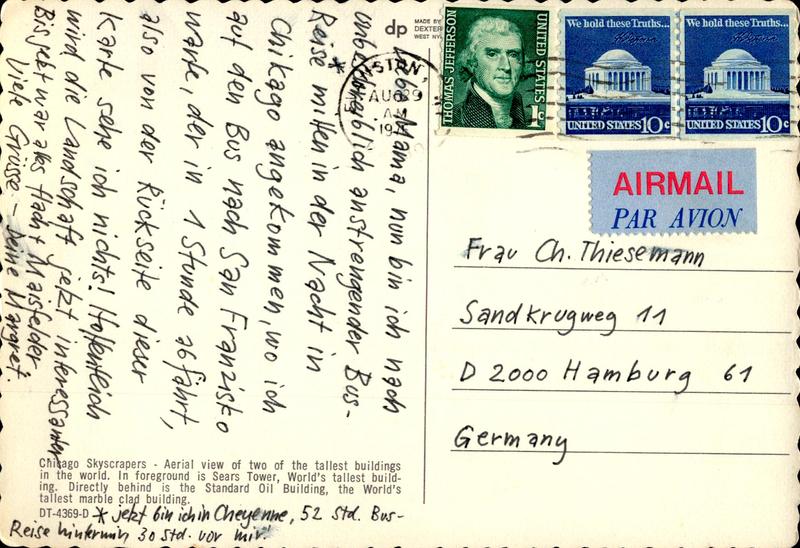 Liebe Mama, nun bin ich nach
unbeschreiblich anstrengender Bus-
Reise * mitten in der Nacht in
Chikago angekommen, wo ich
auf den Bus nach San Franzisko
warte, der in 1 Stunde abfährt,
also von der Rückseite dieser
Karte sehe ich nichts! Hoffentlich
wird die Landschaft jetzt interessanter
Bis jetzt war alles flach + Maisfelder.
Viele Grüsse - Deine Margret.
Chicago Skyscrapers - Aerial view of two of the tallest buildings
in the world. In foreground is Sears Tower, World's tallest build-
ing. Directly behind is the Standard Oil Building, the World's
tallest marble clad building.
DT-4369-D
* jetzt bin ich in Cheyenne, 52 Std. Bus-
Reise hinter mir, 30 Std. vor mir.
dp
MADE BY
DEXTER
WEST NY
AUG 29
AM
THOMAS JEFFERSON
UNITED STATES
1c
We hold these Truths...
UNITED STATES 10c
We hold these Truths...
UNITED STATES 10c
AIRMAIL
PAR AVION
Frau Ch. Thiesemann
Sandkrugweg 11
D 2000 Hamburg 61
Germany